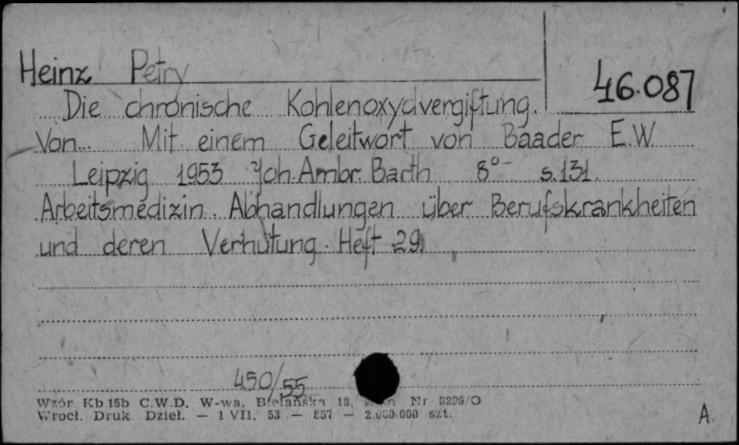 Heinz Petry
46.087
Die chronische Kohlenoxydvergiftung.
Von... Mit einem Geleitwort von Baader E.W.
Leipzig 1953 Joh. Ambr. Barth 8° s.131.
Arbeitsmedizin. Abhandlungen über Berufskrankheiten
und deren Verhütung. Heft 29.
450/55
Wzór Kb 15b C.W.D. W-wa, Bielańska 18, Nr 8296/O
Wrocł. Druk. Dzieł. — 1 VII. 53 — 857 — 2.000.000 szt.
A.